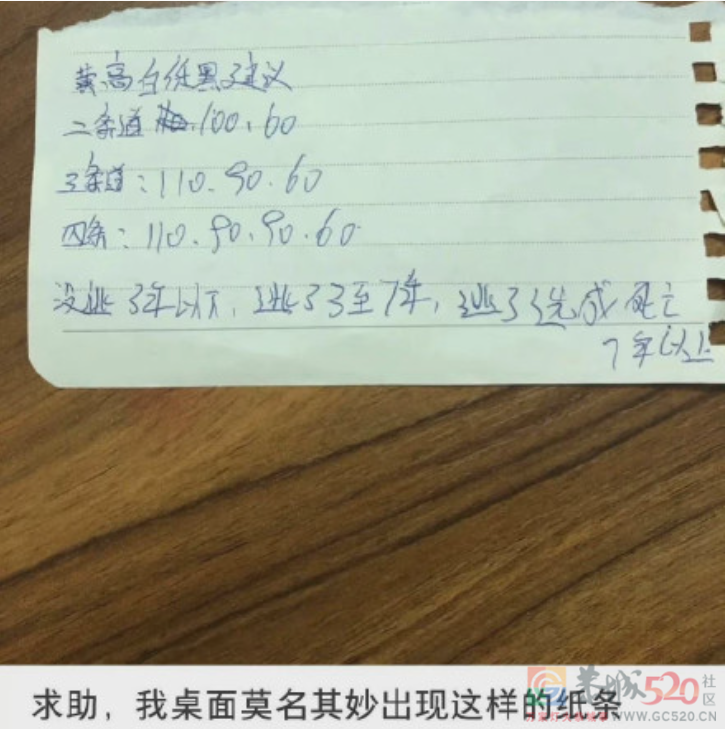 黄高白低黑建议
二条道 100、60
3条道：110.90.60
四条：110.90.90.60
没逃3年以下，逃了3至7年，逃了造成死亡
7年以上
求助，我桌面莫名其妙出现这样的纸条
莱城520社区
WWW.GC520.CN